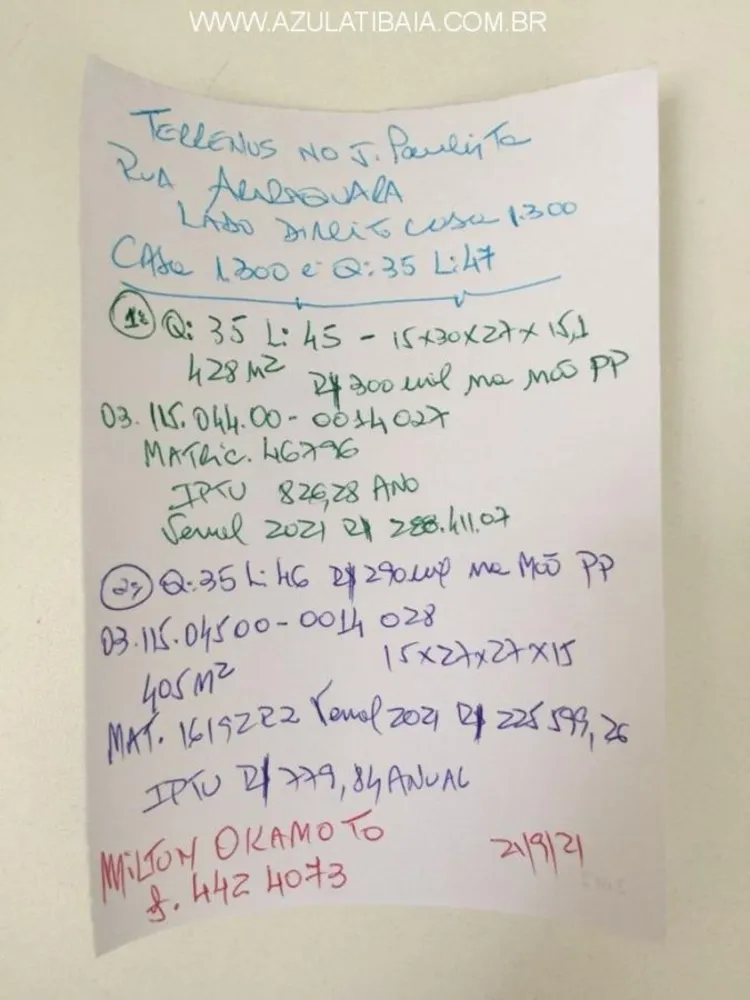 WWW.AZULATIBAIA.COM.BR
TERRENOS NO J. Paulista
RUA ARARAQUARA
LADO DIREITO casa 1.300
CASA 1.300 é Q: 35 L: 47
1º Q: 35 L: 45 - 15x30x27x15,1
428 M² R$ 300 mil na mão PP
03.115.044.00-0014027
MATRIC. 46796
IPTU 826,28 ANO
Venal 2021 R$ 288.411.07
2º Q: 35 L: 46 R$ 290 mil na Mão PP
03.115.04500-0014 028
405 M² 15x27x27x15
MAT. Venal 2021 R$ 225 599,26
IPTU R$ 779,84 ANUAL
MILTON OKAMOTO 21/9/21
f. 442 4073